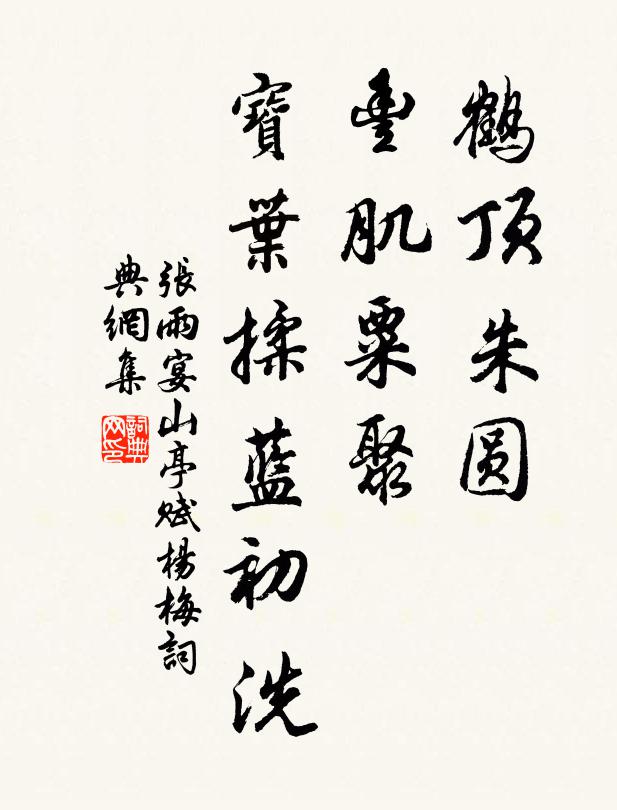 鶴頂朱圓
豊肌粟聚
寶葉揉藍初洗
張雨宴山亭賦楊梅詞
典網集
詞典網印